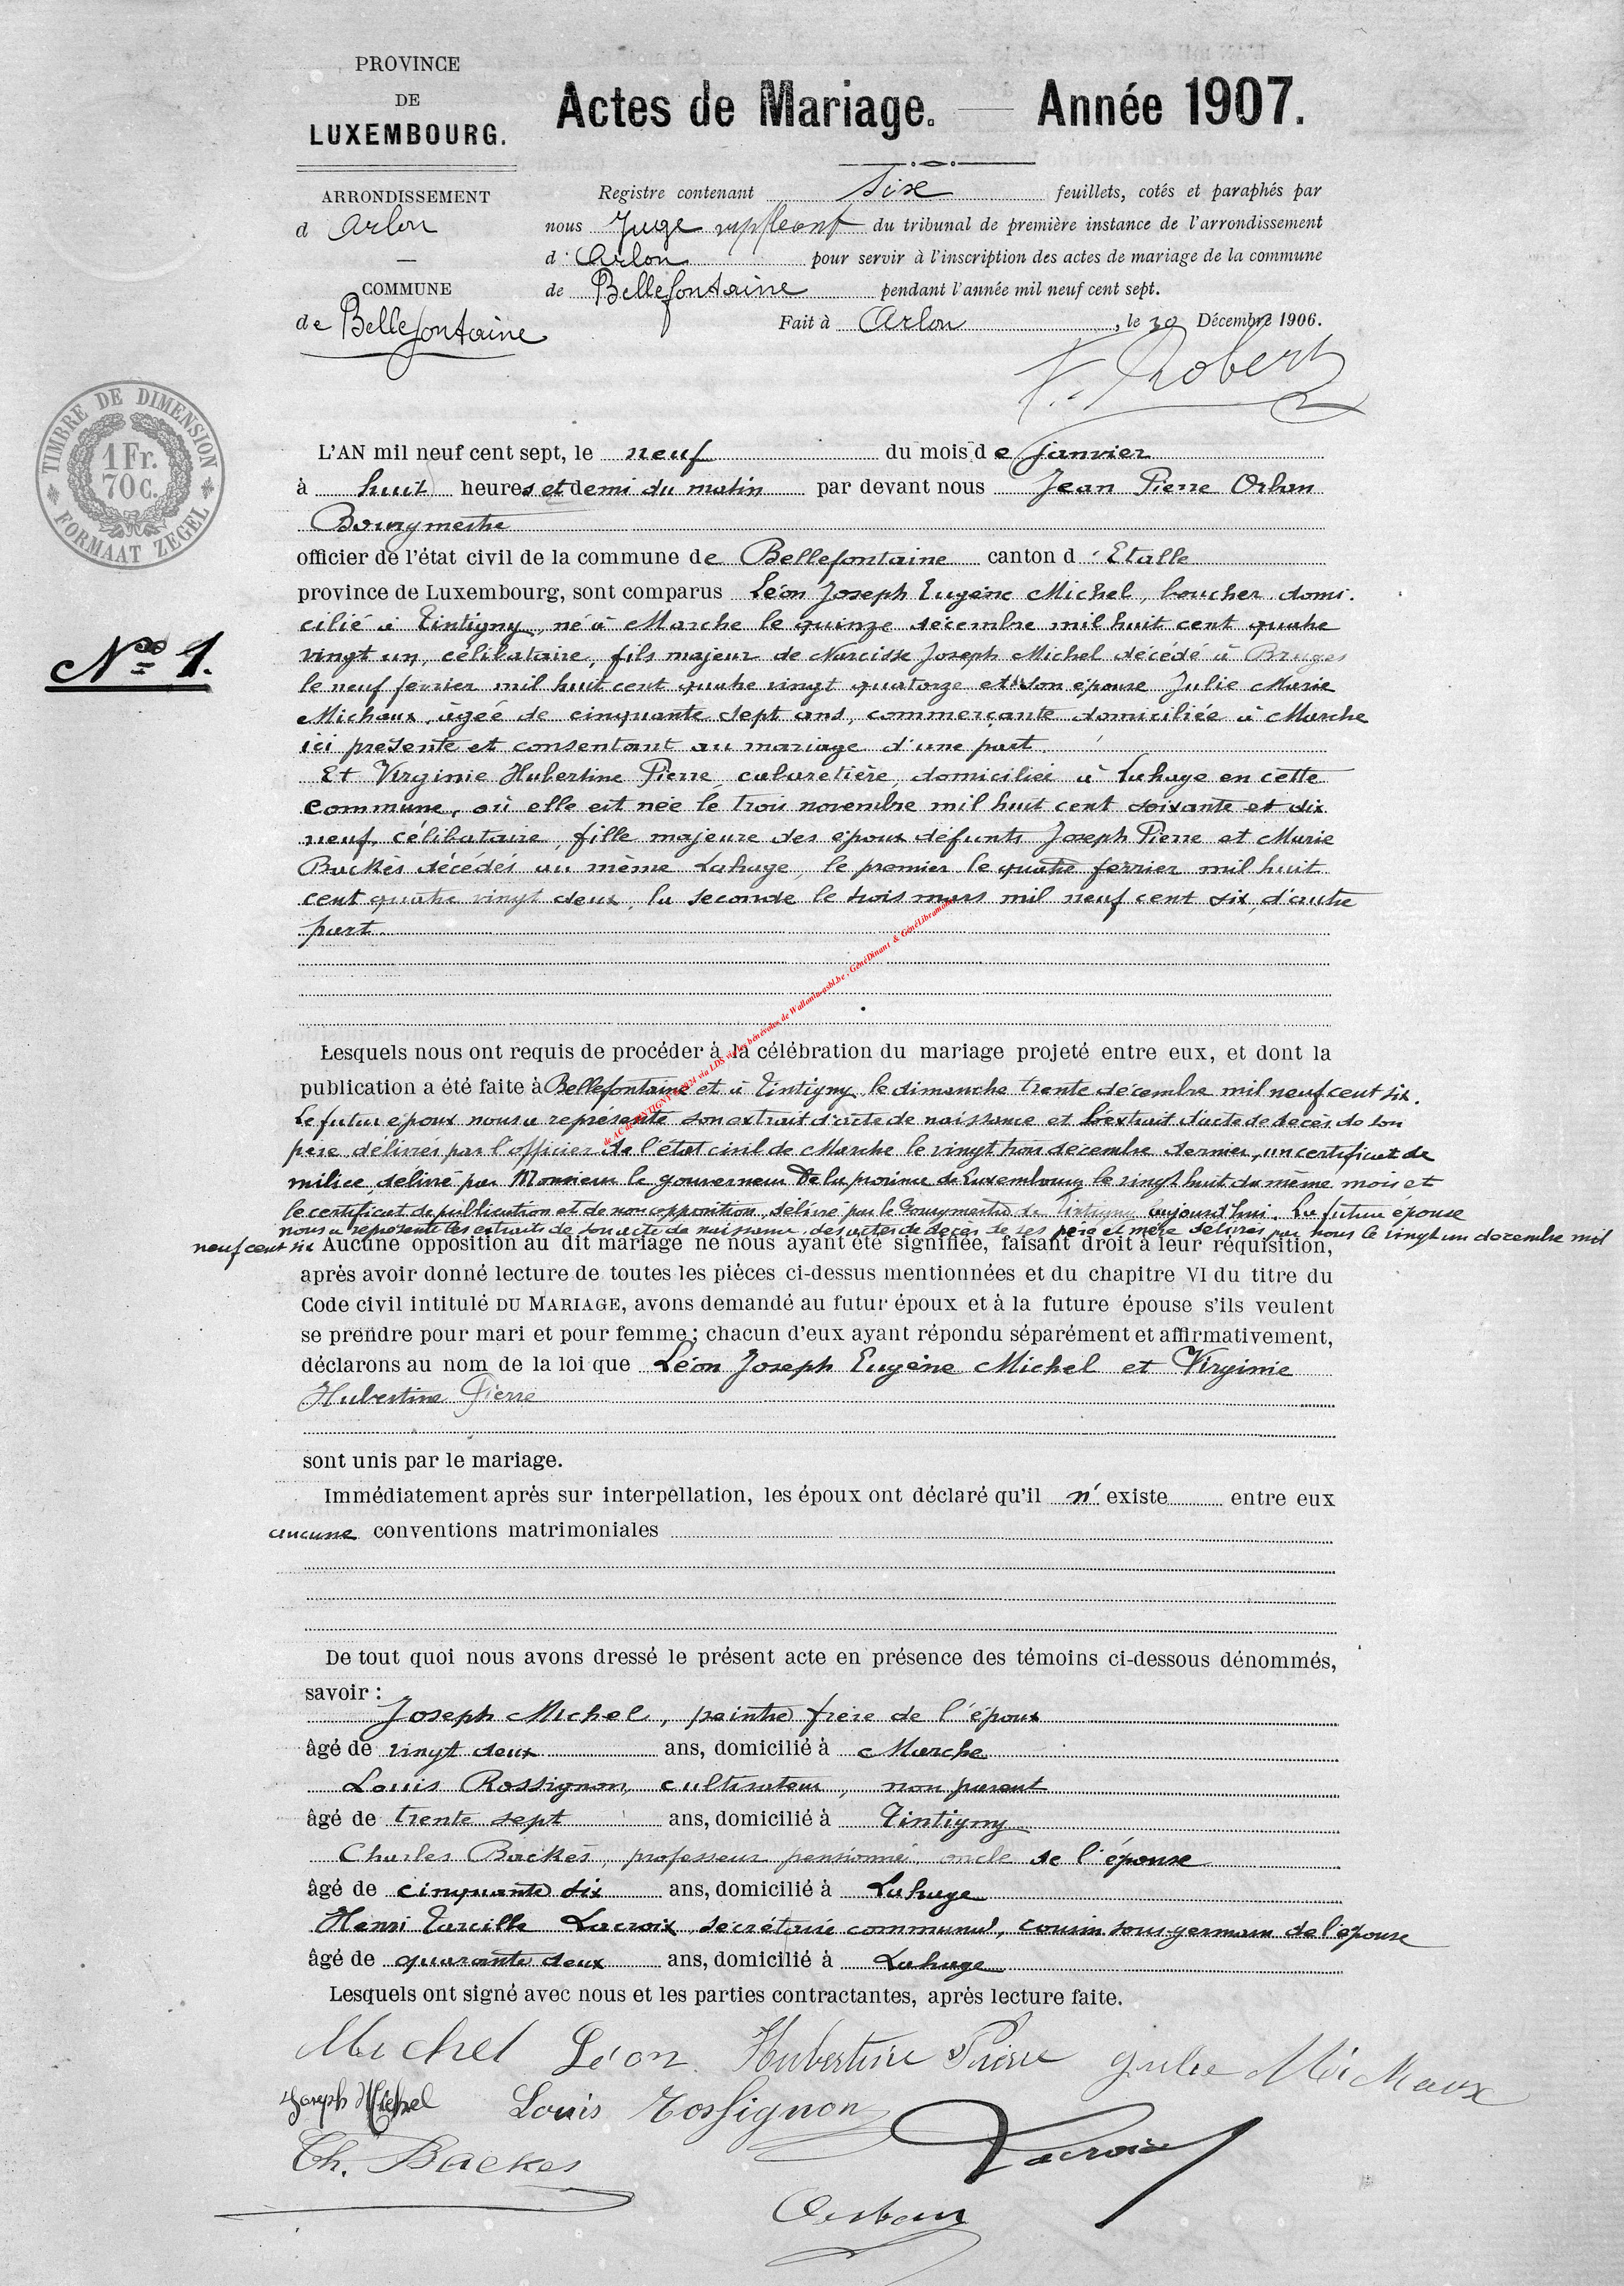 PROVINCE
DE
LUXEMBOURG.
Actes de Mariage. — Année 1907.
ARRONDISSEMENT
d Arlon
COMMUNE
de Bellefontaine
Registre contenant six feuillets, cotés et paraphés par
nous Juge suppléant du tribunal de première instance de l'arrondissement
d'Arlon pour servir à l'inscription des actes de mariage de la commune
de Bellefontaine pendant l'année mil neuf cent sept.
Fait à Arlon, le 29 Décembre 1906.
Robert
TIMBRE DE DIMENSION
1 Fr.
70 C.
FORMAAT ZEGEL
L'AN mil neuf cent sept, le neuf du mois de janvier
à huit heures et demi du matin par devant nous Jean Pierre Orban
Bourgmestre
officier de l'état civil de la commune de Bellefontaine canton d'Etalle
province de Luxembourg, sont comparus Léon Joseph Eugène Michel, boucher domi-
N° 1.
cilié à Tintigny, né à Marche le quinze décembre mil huit cent quatre
vingt un, célibataire, fils majeur de Narcisse Joseph Michel décédé à Bruges
le neuf février mil huit cent quatre vingt quatorze et son épouse Julie Marie
Michaux, âgée de cinquante sept ans, commerçante domiciliée à Marche
ici présente et consentant au mariage d'une part.
Et Virginie Hubertine Pierre cabaretière domiciliée à Lahage en cette
commune, où elle est née le trois novembre mil huit cent soixante et dix
neuf, célibataire fille majeure des époux défunts Joseph Pierre et Marie
Backès décédés au même Lahage, le premier le quatre février mil huit
cent quatre vingt deux, la seconde le trois mars mil neuf cent six, d'autre
part.
de AC de TINTIGNY 2024 via LDS via les bénévoles de Wallonia-asbl.be, GénéDinant & GénéLibramont
Lesquels nous ont requis de procéder à la célébration du mariage projeté entre eux, et dont la
publication a été faite à Bellefontaine et à Tintigny le dimanche trente décembre mil neuf cent six.
Le futur époux nous a représenté son extrait d'acte de naissance et l'extrait d'acte de décès de son
père délivrés par l'officier de l'état civil de Marche le vingt trois décembre dernier, un certificat de
milice délivré par Monsieur le gouverneur De la province de Luxembourg le vingt huit du même mois et
le certificat de publication et de non opposition, délivré par le Bourgmestre de Tintigny aujourd'hui. La future épouse
nous a représenté les extraits de son acte de naissance, des actes de décès de ses père et mère délivrés par nous le vingt un décembre mil
neuf cent six Aucune opposition au dit mariage ne nous ayant été signifiée, faisant droit à leur réquisition,
après avoir donné lecture de toutes les pièces ci-dessus mentionnées et du chapitre VI du titre du
Code civil intitulé DU MARIAGE, avons demandé au futur époux et à la future épouse s'ils veulent
se prendre pour mari et pour femme ; chacun d'eux ayant répondu séparément et affirmativement,
déclarons au nom de la loi que Léon Joseph Eugène Michel et Virginie
Hubertine Pierre
sont unis par le mariage.
Immédiatement après sur interpellation, les époux ont déclaré qu'il n'existe entre eux
aucune conventions matrimoniales
De tout quoi nous avons dressé le présent acte en présence des témoins ci-dessous dénommés,
savoir :
Joseph Michel, peintre frère de l'époux
âgé de vingt deux ans, domicilié à Marche
Louis Rossignon, cultivateur, non parent
âgé de trente sept ans, domicilié à Tintigny
Charles Backès, professeur pensionné, oncle de l'épouse
âgé de cinquante six ans, domicilié à Lahage
Henri Tarcille Lacroix, secrétaire communal, cousin sous germain de l'épouse
âgé de quarante deux ans, domicilié à Lahage
Lesquels ont signé avec nous et les parties contractantes, après lecture faite.
Michel Léon Hubertine Pierre Julie Michaux
Joseph Michel Louis Rossignon Lacroix
Ch. Backes
Orban